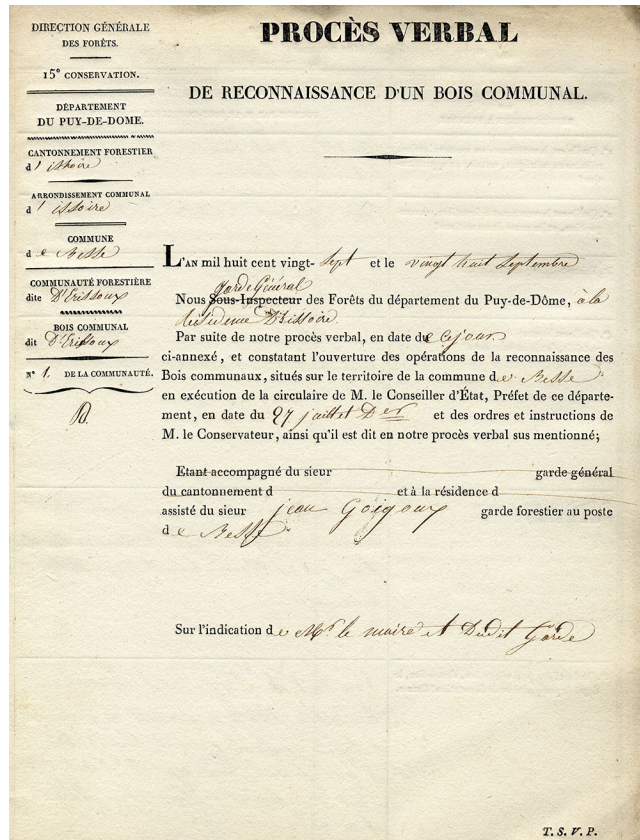 DIRECTION GÉNÉRALE
DES FORÊTS.
15e CONSERVATION.
DÉPARTEMENT
DU PUY-DE-DOME.
CANTONNEMENT FORESTIER
d'issoire
ARRONDISSEMENT COMMUNAL
d'issoire
COMMUNE
de Besse
COMMUNAUTÉ FORESTIÈRE
dite D'Erissoux
BOIS COMMUNAL
dit D'Erissoux
N° 1. DE LA COMMUNAUTÉ.
PROCÈS VERBAL
DE RECONNAISSANCE D'UN BOIS COMMUNAL.
L'AN mil huit cent vingt-sept et le vingt huit Septembre
garde Général
Nous Sous-Inspecteur des Forêts du département du Puy-de-Dôme, à la
résidence D'issoire
Par suite de notre procès verbal, en date de ce jour
ci-annexé, et constatant l'ouverture des opérations de la reconnaissance des
Bois communaux, situés sur le territoire de la commune de Besse
en exécution de la circulaire de M. le Conseiller d'État, Préfet de ce départe-
ment, en date du 27 juillet Der et des ordres et instructions de
M. le Conservateur, ainsi qu'il est dit en notre procès verbal sus mentionné;
Etant accompagné du sieur garde général
du cantonnement d et à la résidence d
assisté du sieur jean Goigoux garde forestier au poste
de Besse
Sur l'indication de Mr le maire et Dudit Garde
T. S. V. P.